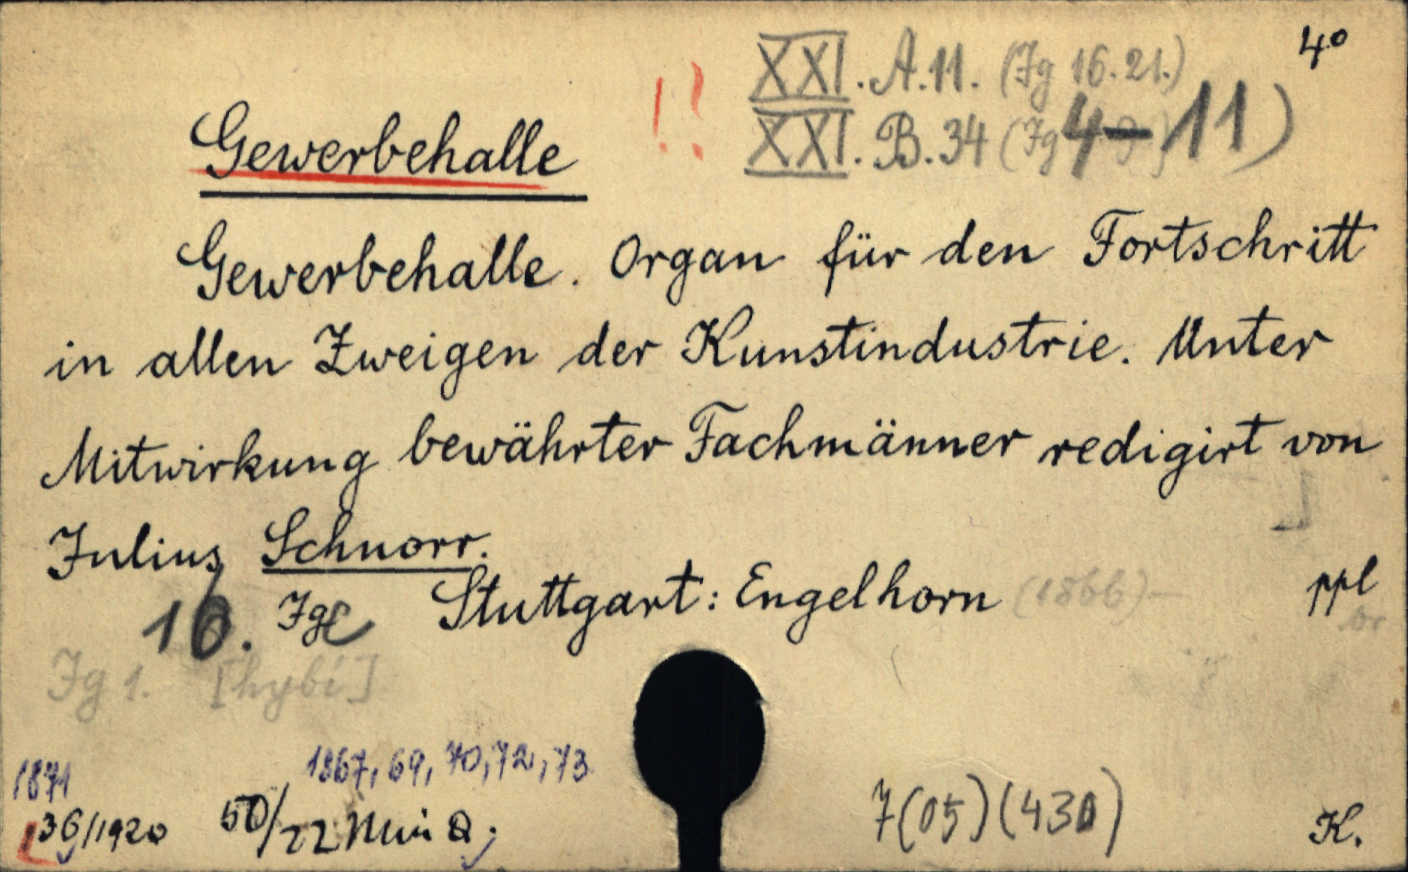 4°
XXI. A. 11. (Jg 16. 21.)
!? XXI. B. 34 (Jg 4-11)
Gewerbehalle
Gewerbehalle. Organ für den Fortschritt
in allen Zweigen der Kunstindustrie. Unter
Mitwirkung bewährter Fachmänner redigirt von
Julius Schnorr.
16. Jg Stuttgart: Engelhorn (1866)— ppl
Jg 1. [hybi]
1871 1867, 69, 70, 72, 73
36/1920 50/22 7(05)(430) K.